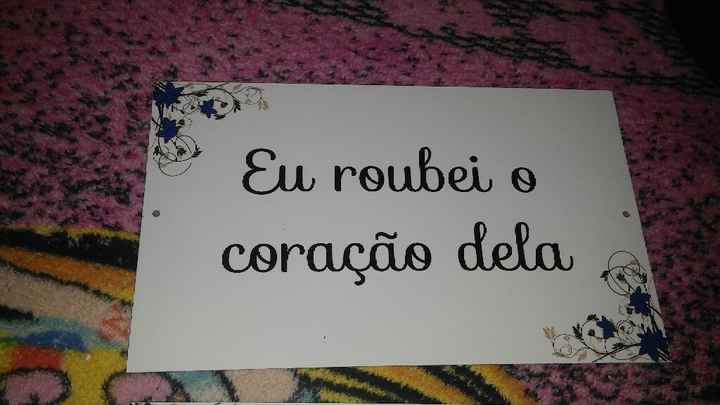 Eu roubei o
coração dela